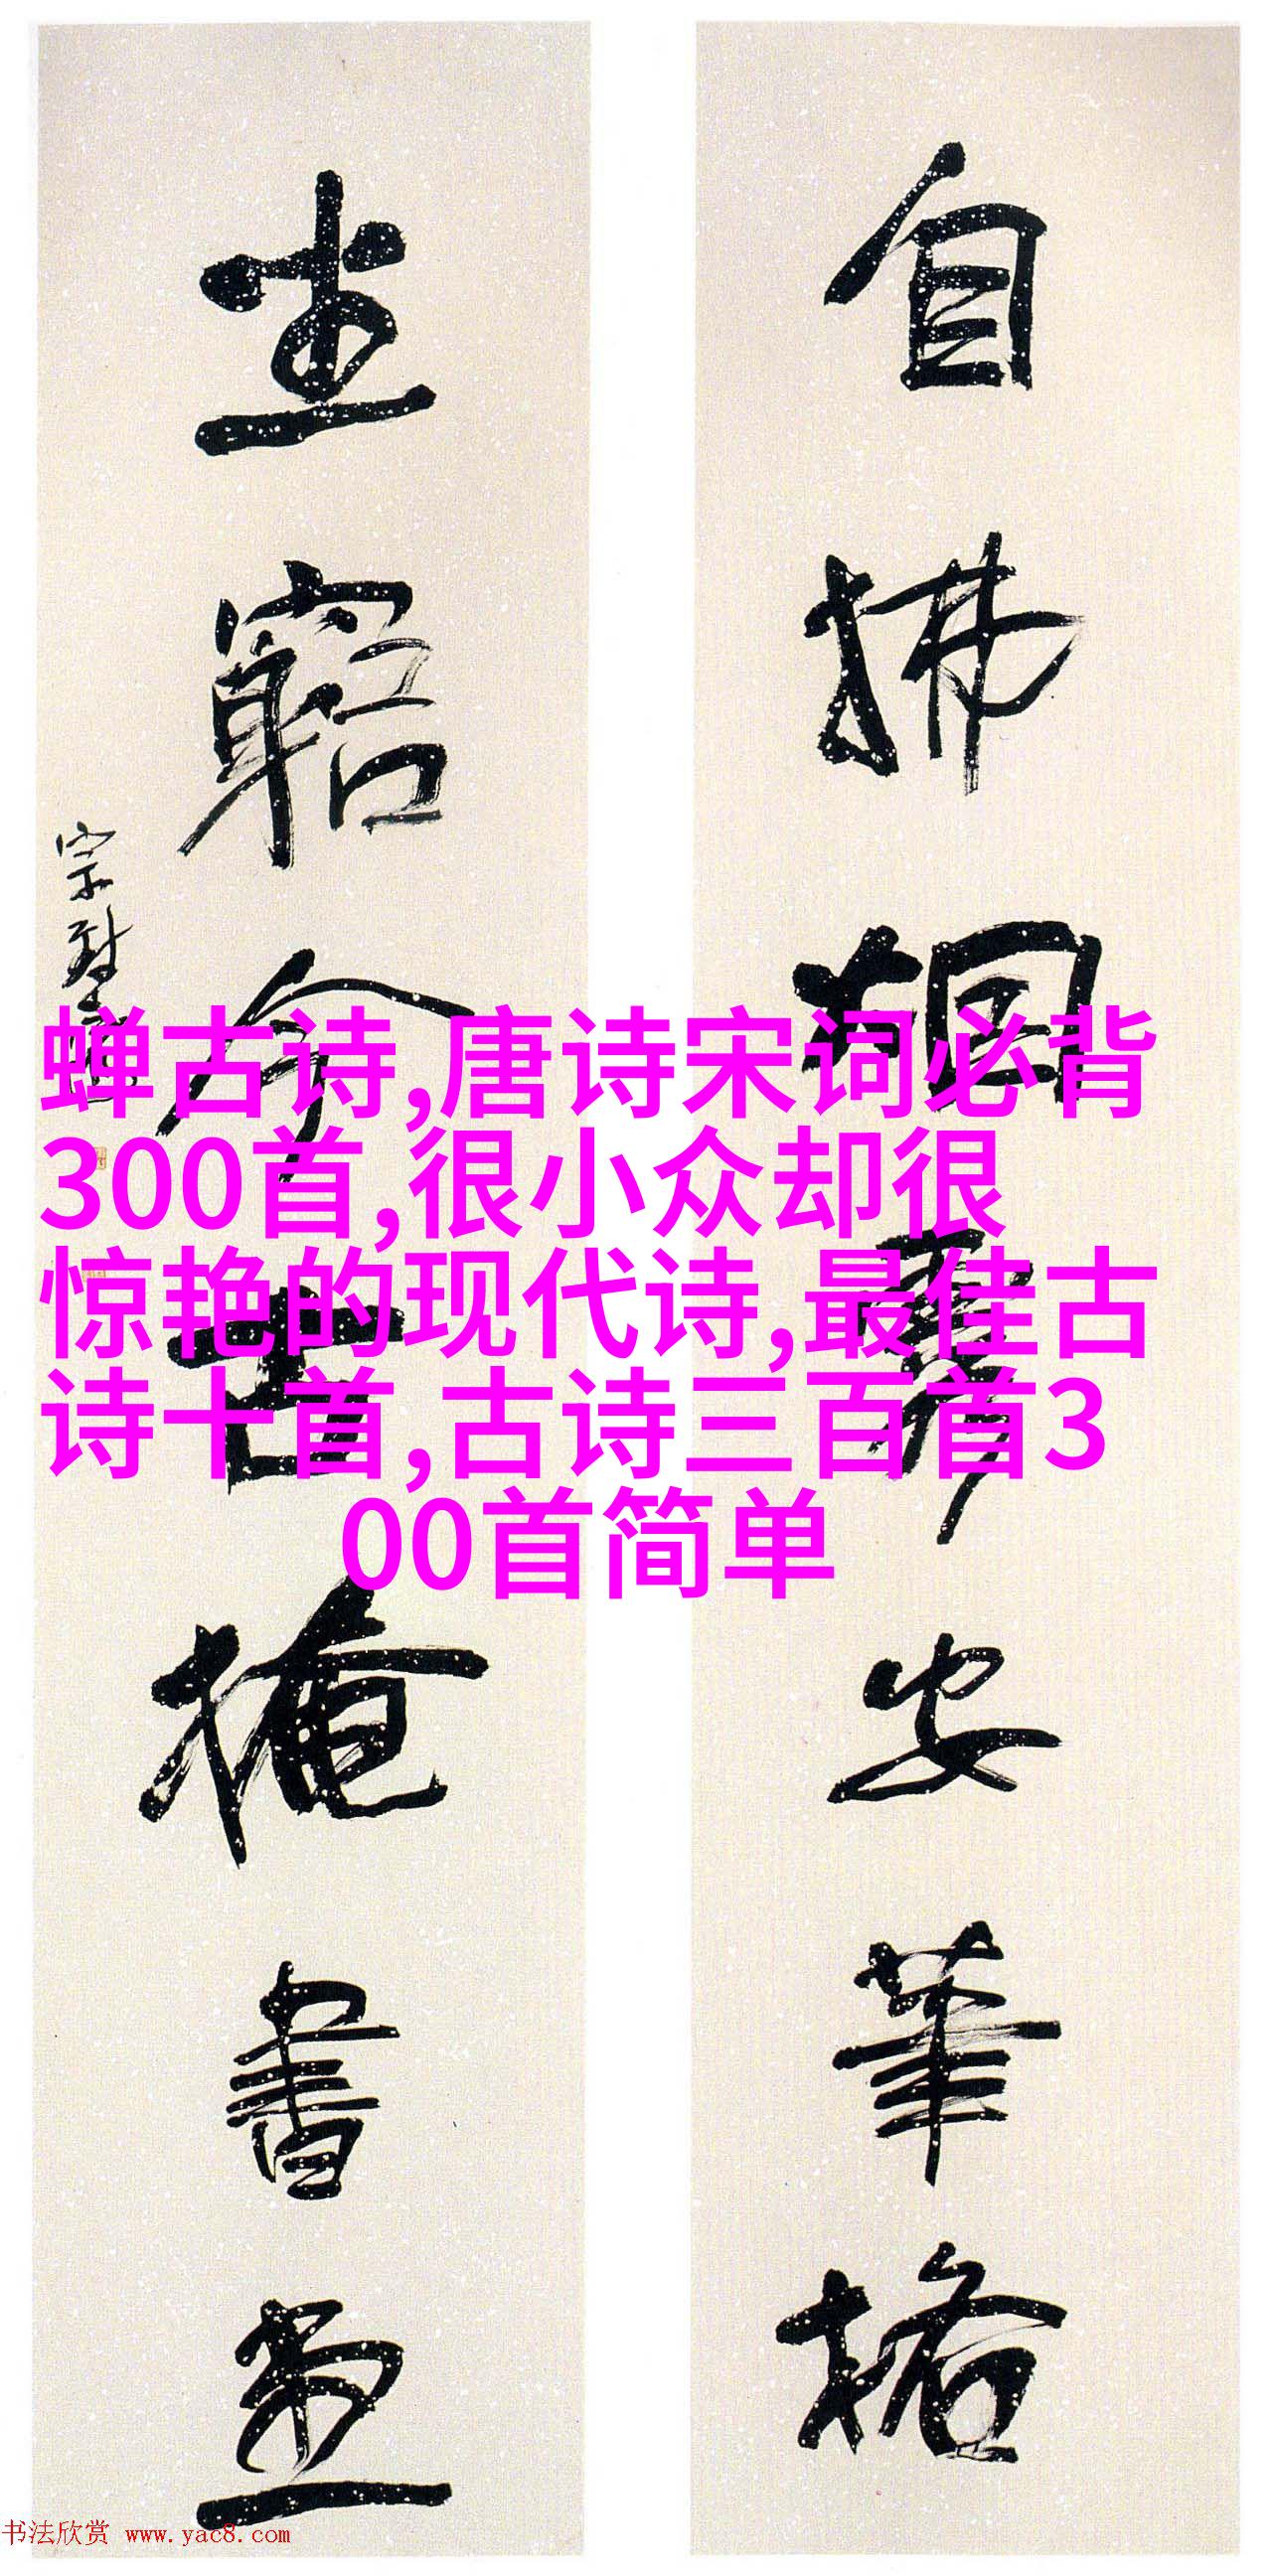 自拂烟霞安筆格
坐窮今古掩書堂
蝉古诗,唐诗宋词必背
300首,很小众却很
惊艳的现代诗,最佳古
诗十首,古诗三百首3
00首简单
书法欣赏 www.yac8.com